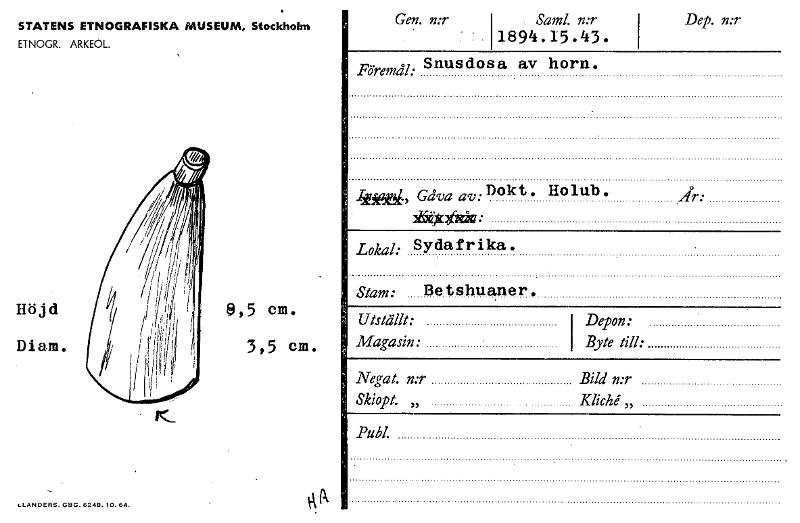 STATENS ETNOGRAFISKA MUSEUM, Stockholm
ETNOGR. ARKEOL.
Höjd 8,5 cm.
Diam. 3,5 cm.
K
HA
ELANDERS. GBG. 6248. 10. 64.
Gen. n:r Saml. n:r Dep. n:r
1894.15.43.
Föremål: Snusdosa av horn.
Insaml., Gåva av: Dokt. Holub. År:
Köp från:
Lokal: Sydafrika.
Stam: Betshuaner.
Utställt: Depon:
Magasin: Byte till:
Negat. n:r Bild n:r
Skiopt. „ Kliché „
Publ.